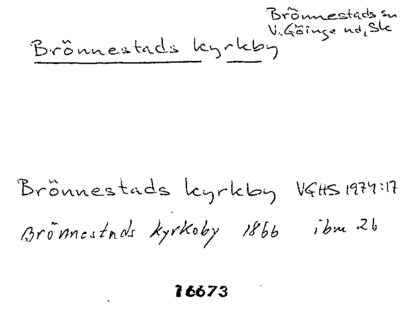 Brönnestads sn
V. Göinge hd, Sk
Brönnestads kyrkby
Brönnestads kyrkby VGHS 1974:17
Brönnestads kyrkoby 1866 ibm 26
16673